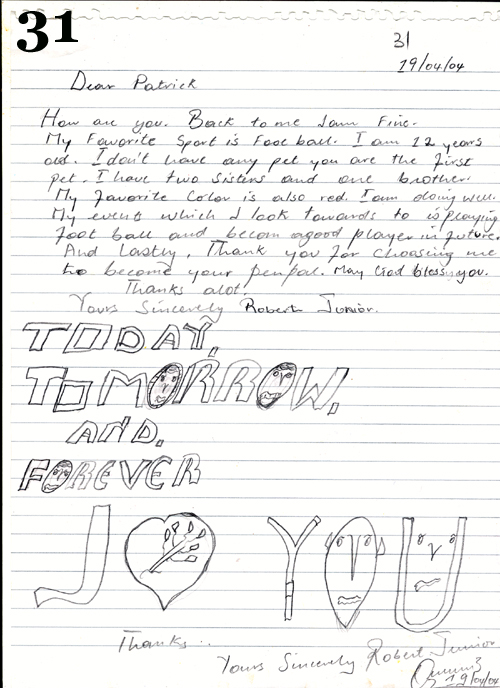 31
31
19/04/04
Dear Patrick
How are you. Back to me I am Fine.
My Favorite Sport is Foot ball. I am 12 years
old. I don't have any pet you are the first
pet. I have two Sisters and one brother.
My favorite Color is also red. I am doing well.
My event which I look towards to is playing
foot ball and becom a good player in future.
And Lastly, Thank you for choosing me
to become your penpal. May God bless you.
Thanks alot.
Yours Sincerely Robert Junior.
TODAY,
TOMORROW,
AND,
FOREVER
JO YOU
Thanks...
Yours Sincerely Robert Junior
19/04/04